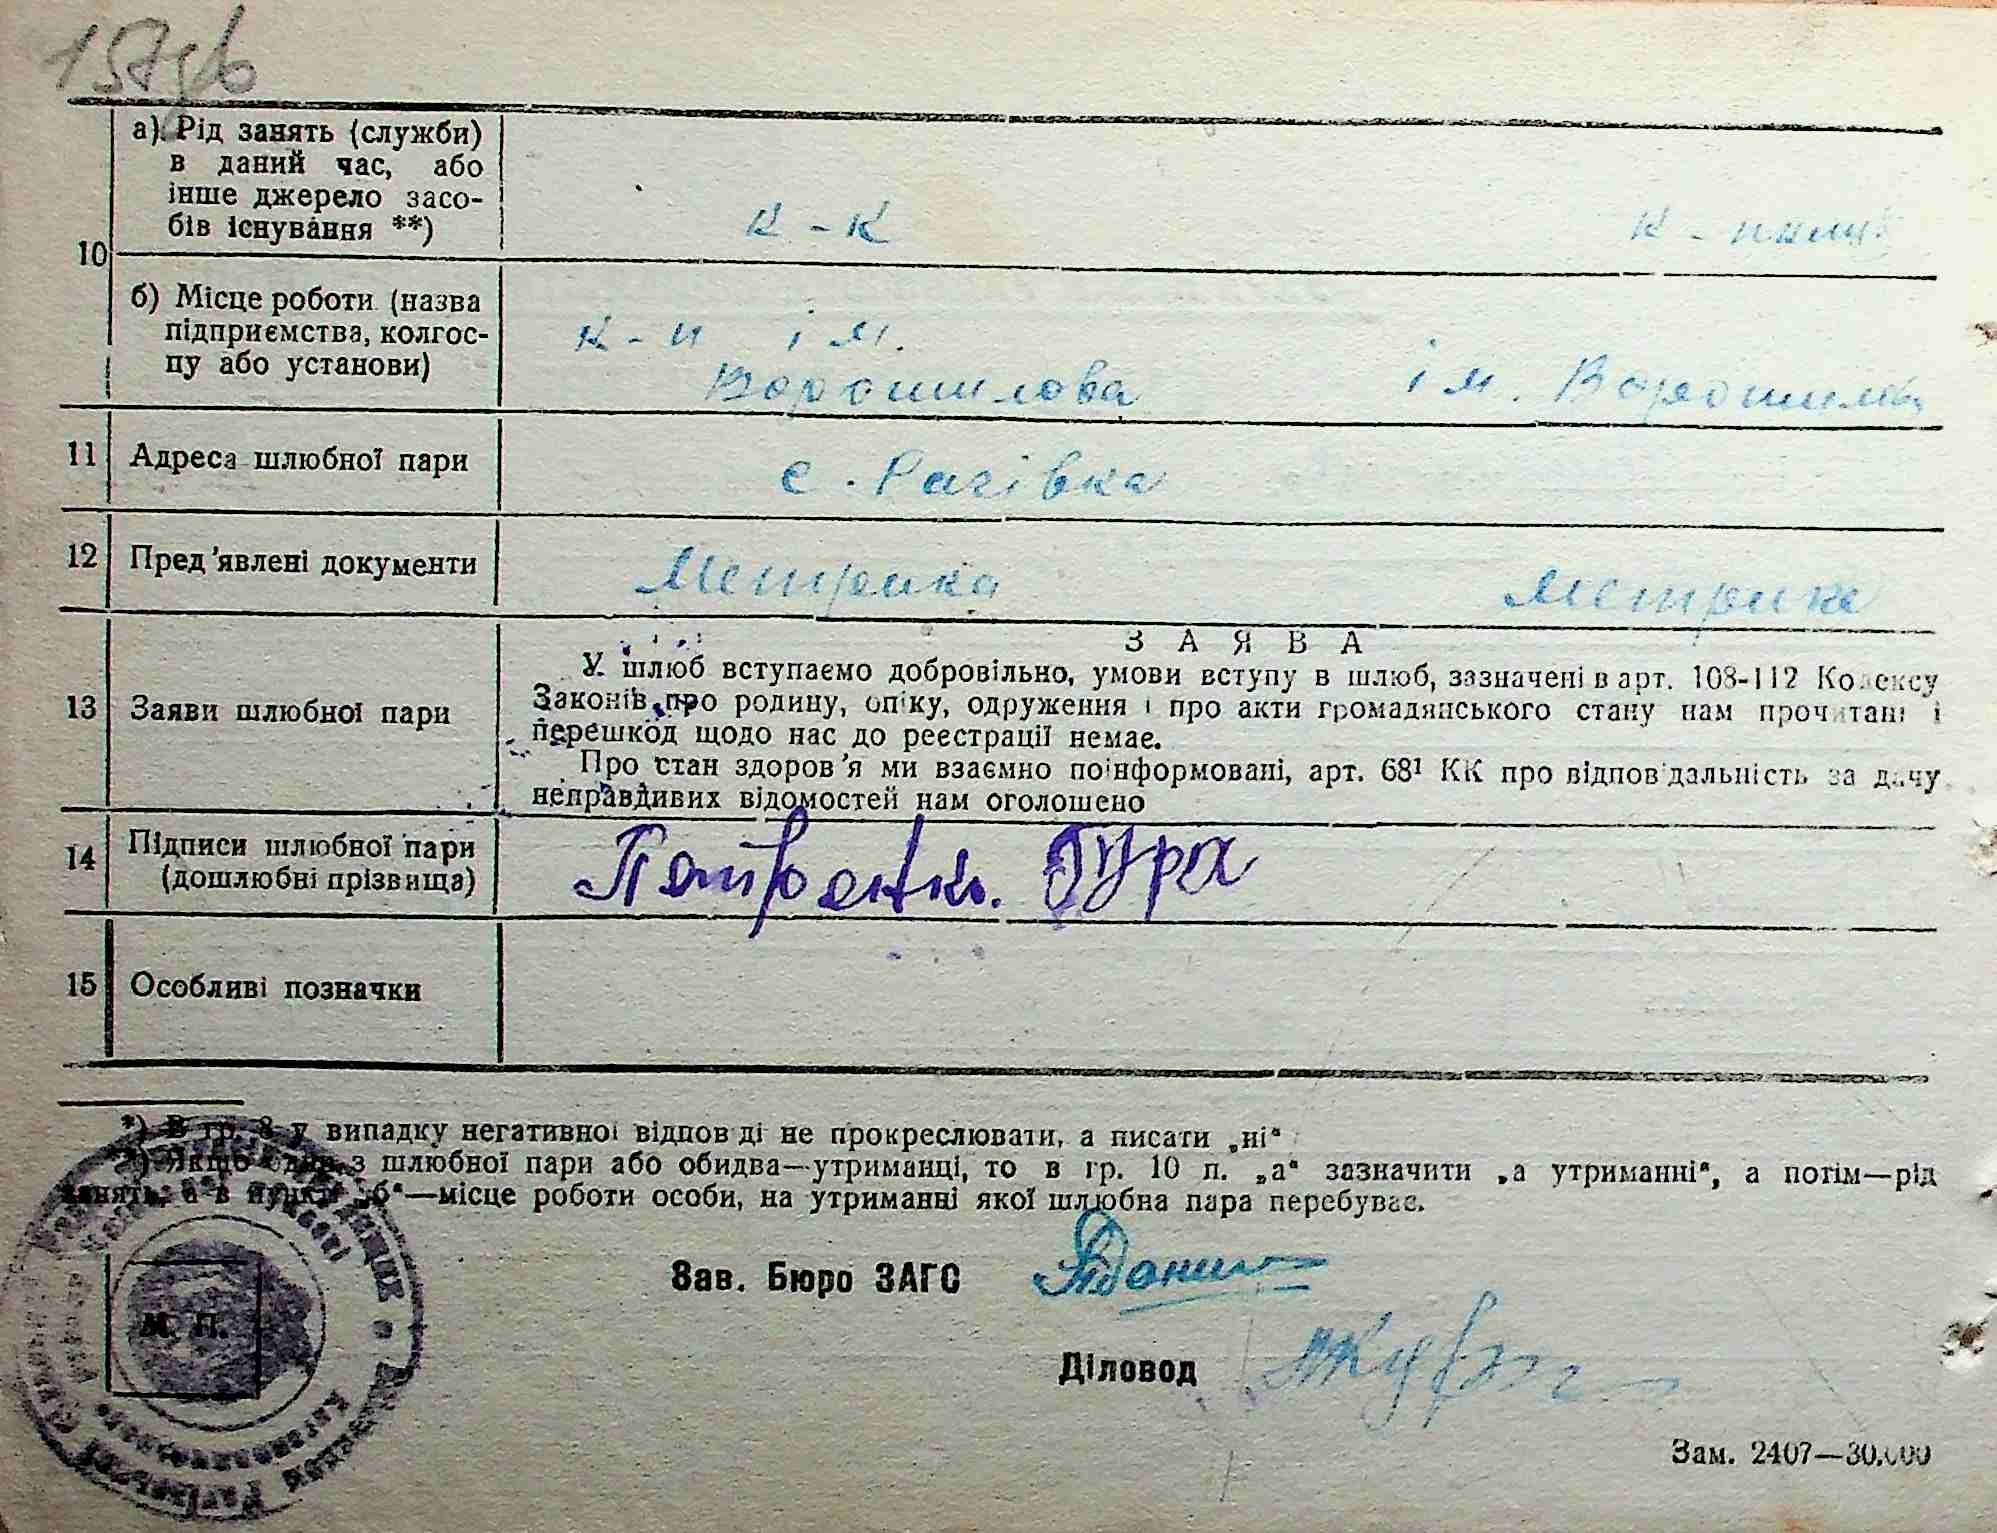 157зв
а) Рід занять (служби)
в даний час, або
інше джерело засо-
бів існування **)
к-к
к-
10
б) Місце роботи (назва
підприємства, колгос-
пу або установи)
к-п ім.
Ворошилова
ім. Ворошилова
11 Адреса шлюбної пари
с. Рагівка
12 Пред'явлені документи
Метрика
Метрика
13 Заяви шлюбної пари
ЗАЯВА
У шлюб вступаємо добровільно, умови вступу в шлюб, зазначені в арт. 108-112 Кодексу
Законів про родину, опіку, одруження і про акти громадянського стану нам прочитані і
перешкод щодо нас до реєстрації немає.
Про стан здоров'я ми взаємно поінформовані, арт. 68¹ КК про відповідальність за дачу
неправдивих відомостей нам оголошено
14 Підписи шлюбної пари
(дошлюбні прізвища)
Петренко. Гура
15 Особливі позначки
*) В гр. 8 у випадку негативної відповіді не прокреслювати, а писати „ні“
**) Якщо один з шлюбної пари або обидва—утриманці, то в гр. 10 п. „а“ зазначити „а утриманні“, а потім—рід
занять, а в пункті „б“—місце роботи особи, на утриманні якої шлюбна пара перебуває.
Зав. Бюро ЗАГС
М. П.
Діловод
Зам. 2407—30.000